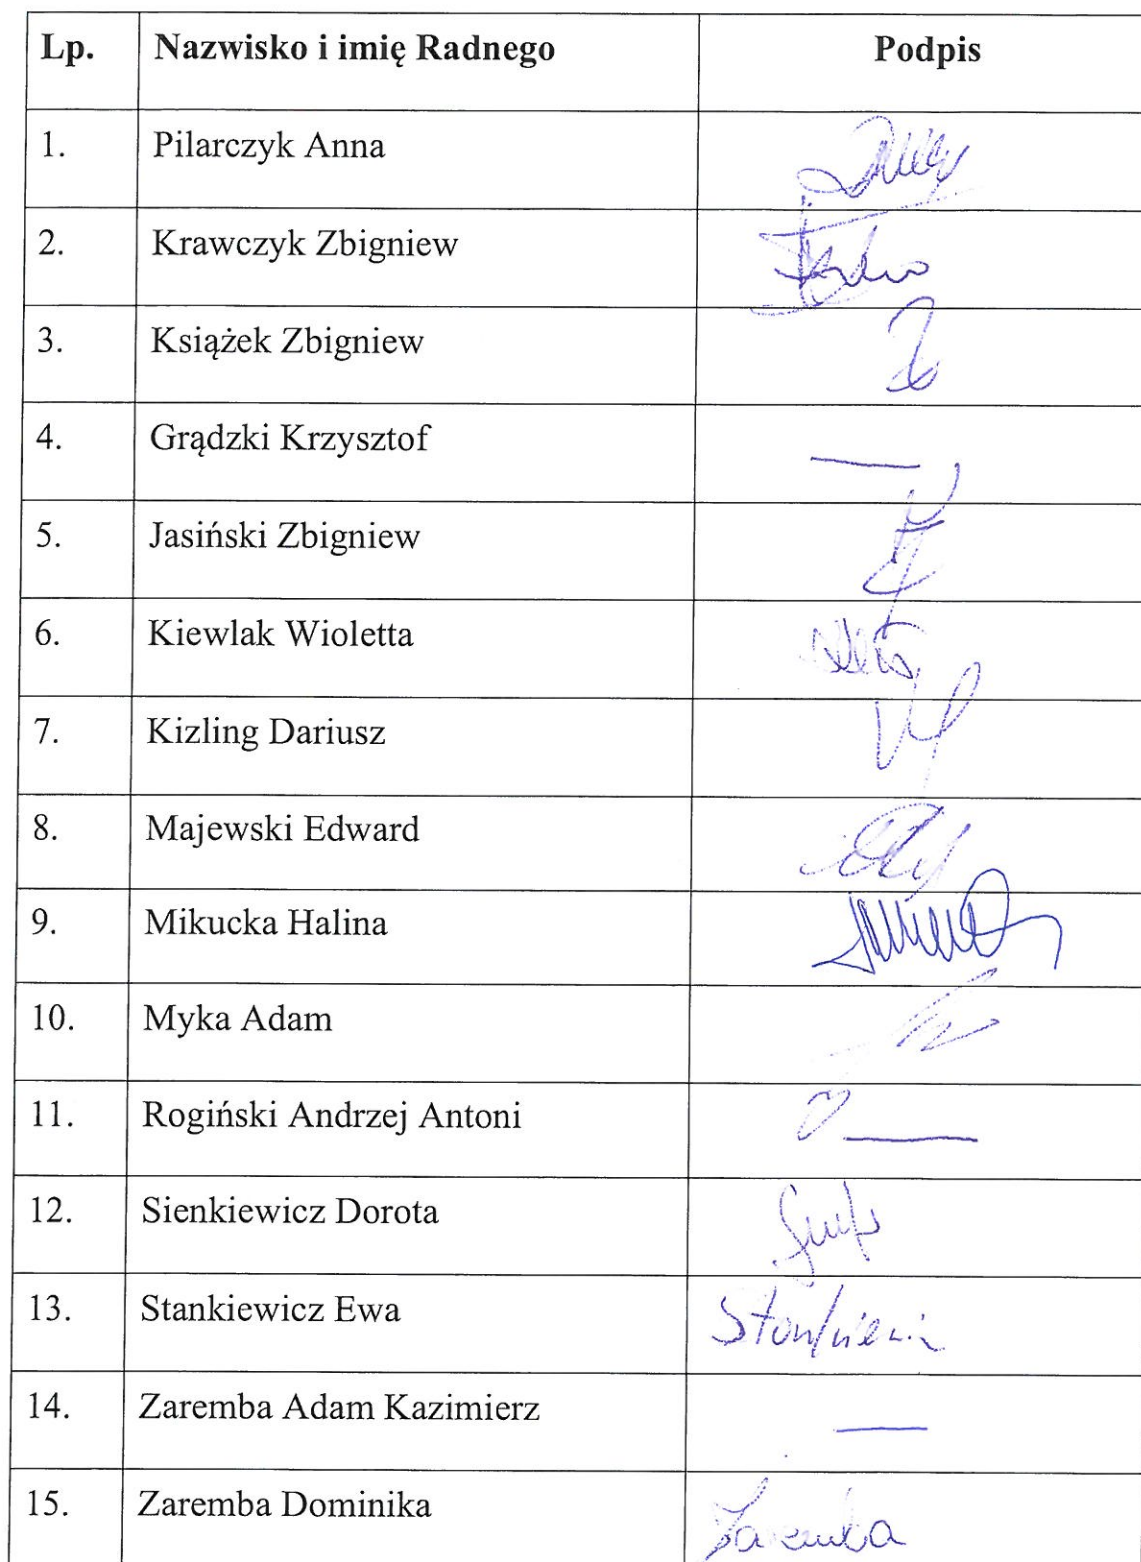 Lp. Nazwisko i imię Radnego Podpis
1. Pilarczyk Anna
2. Krawczyk Zbigniew
3. Książek Zbigniew
4. Grądzki Krzysztof —
5. Jasiński Zbigniew
6. Kiewlak Wioletta
7. Kizling Dariusz
8. Majewski Edward
9. Mikucka Halina
10. Myka Adam
11. Rogiński Andrzej Antoni —
12. Sienkiewicz Dorota
13. Stankiewicz Ewa
14. Zaremba Adam Kazimierz —
15. Zaremba Dominika Zaremba